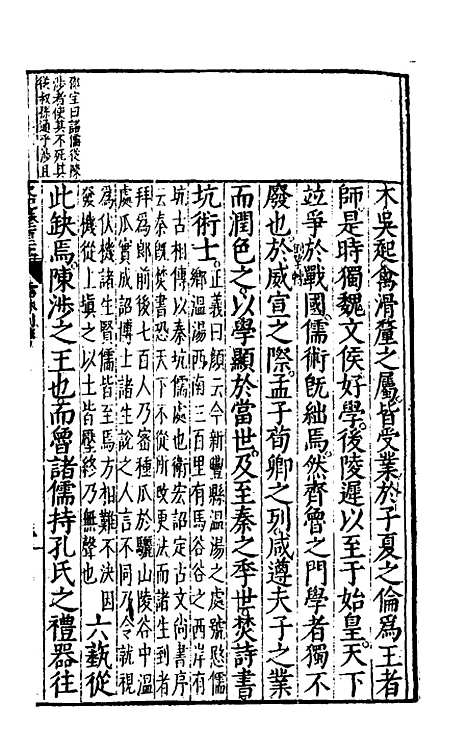 木吳起禽滑釐之屬皆受業於子夏之倫爲王者
師是時獨魏文侯好學後陵遲以至于始皇天下
並爭於戰國儒術旣絀焉然齊魯之門學者獨不
廢也於威宣之際孟子荀卿之列咸遵夫子之業
而潤色之以學顯於當世及至秦之季世焚詩書
坑術士正義曰顏云今新豐縣溫湯之處號愍儒
鄉溫湯西南三百里有馬谷谷之西岸有
坑古相傳以秦坑儒處也衛宏詔定古文尚書序
云秦旣焚書恐天下不從所改更法而諸生到者
拜爲郎前後七百人乃密種瓜於驪山陵谷中溫
處瓜實成詔博士諸生說之人言不同乃令就視
爲伏機諸生賢儒皆至焉方相難不決因
發機從上塡之以土皆壓終乃無聲也
六藝從
此缺焉陳涉之王也而魯諸儒持孔氏之禮器往
邵宝曰諸儒從陳
涉者使其不死其
後叔孫通乎涉且